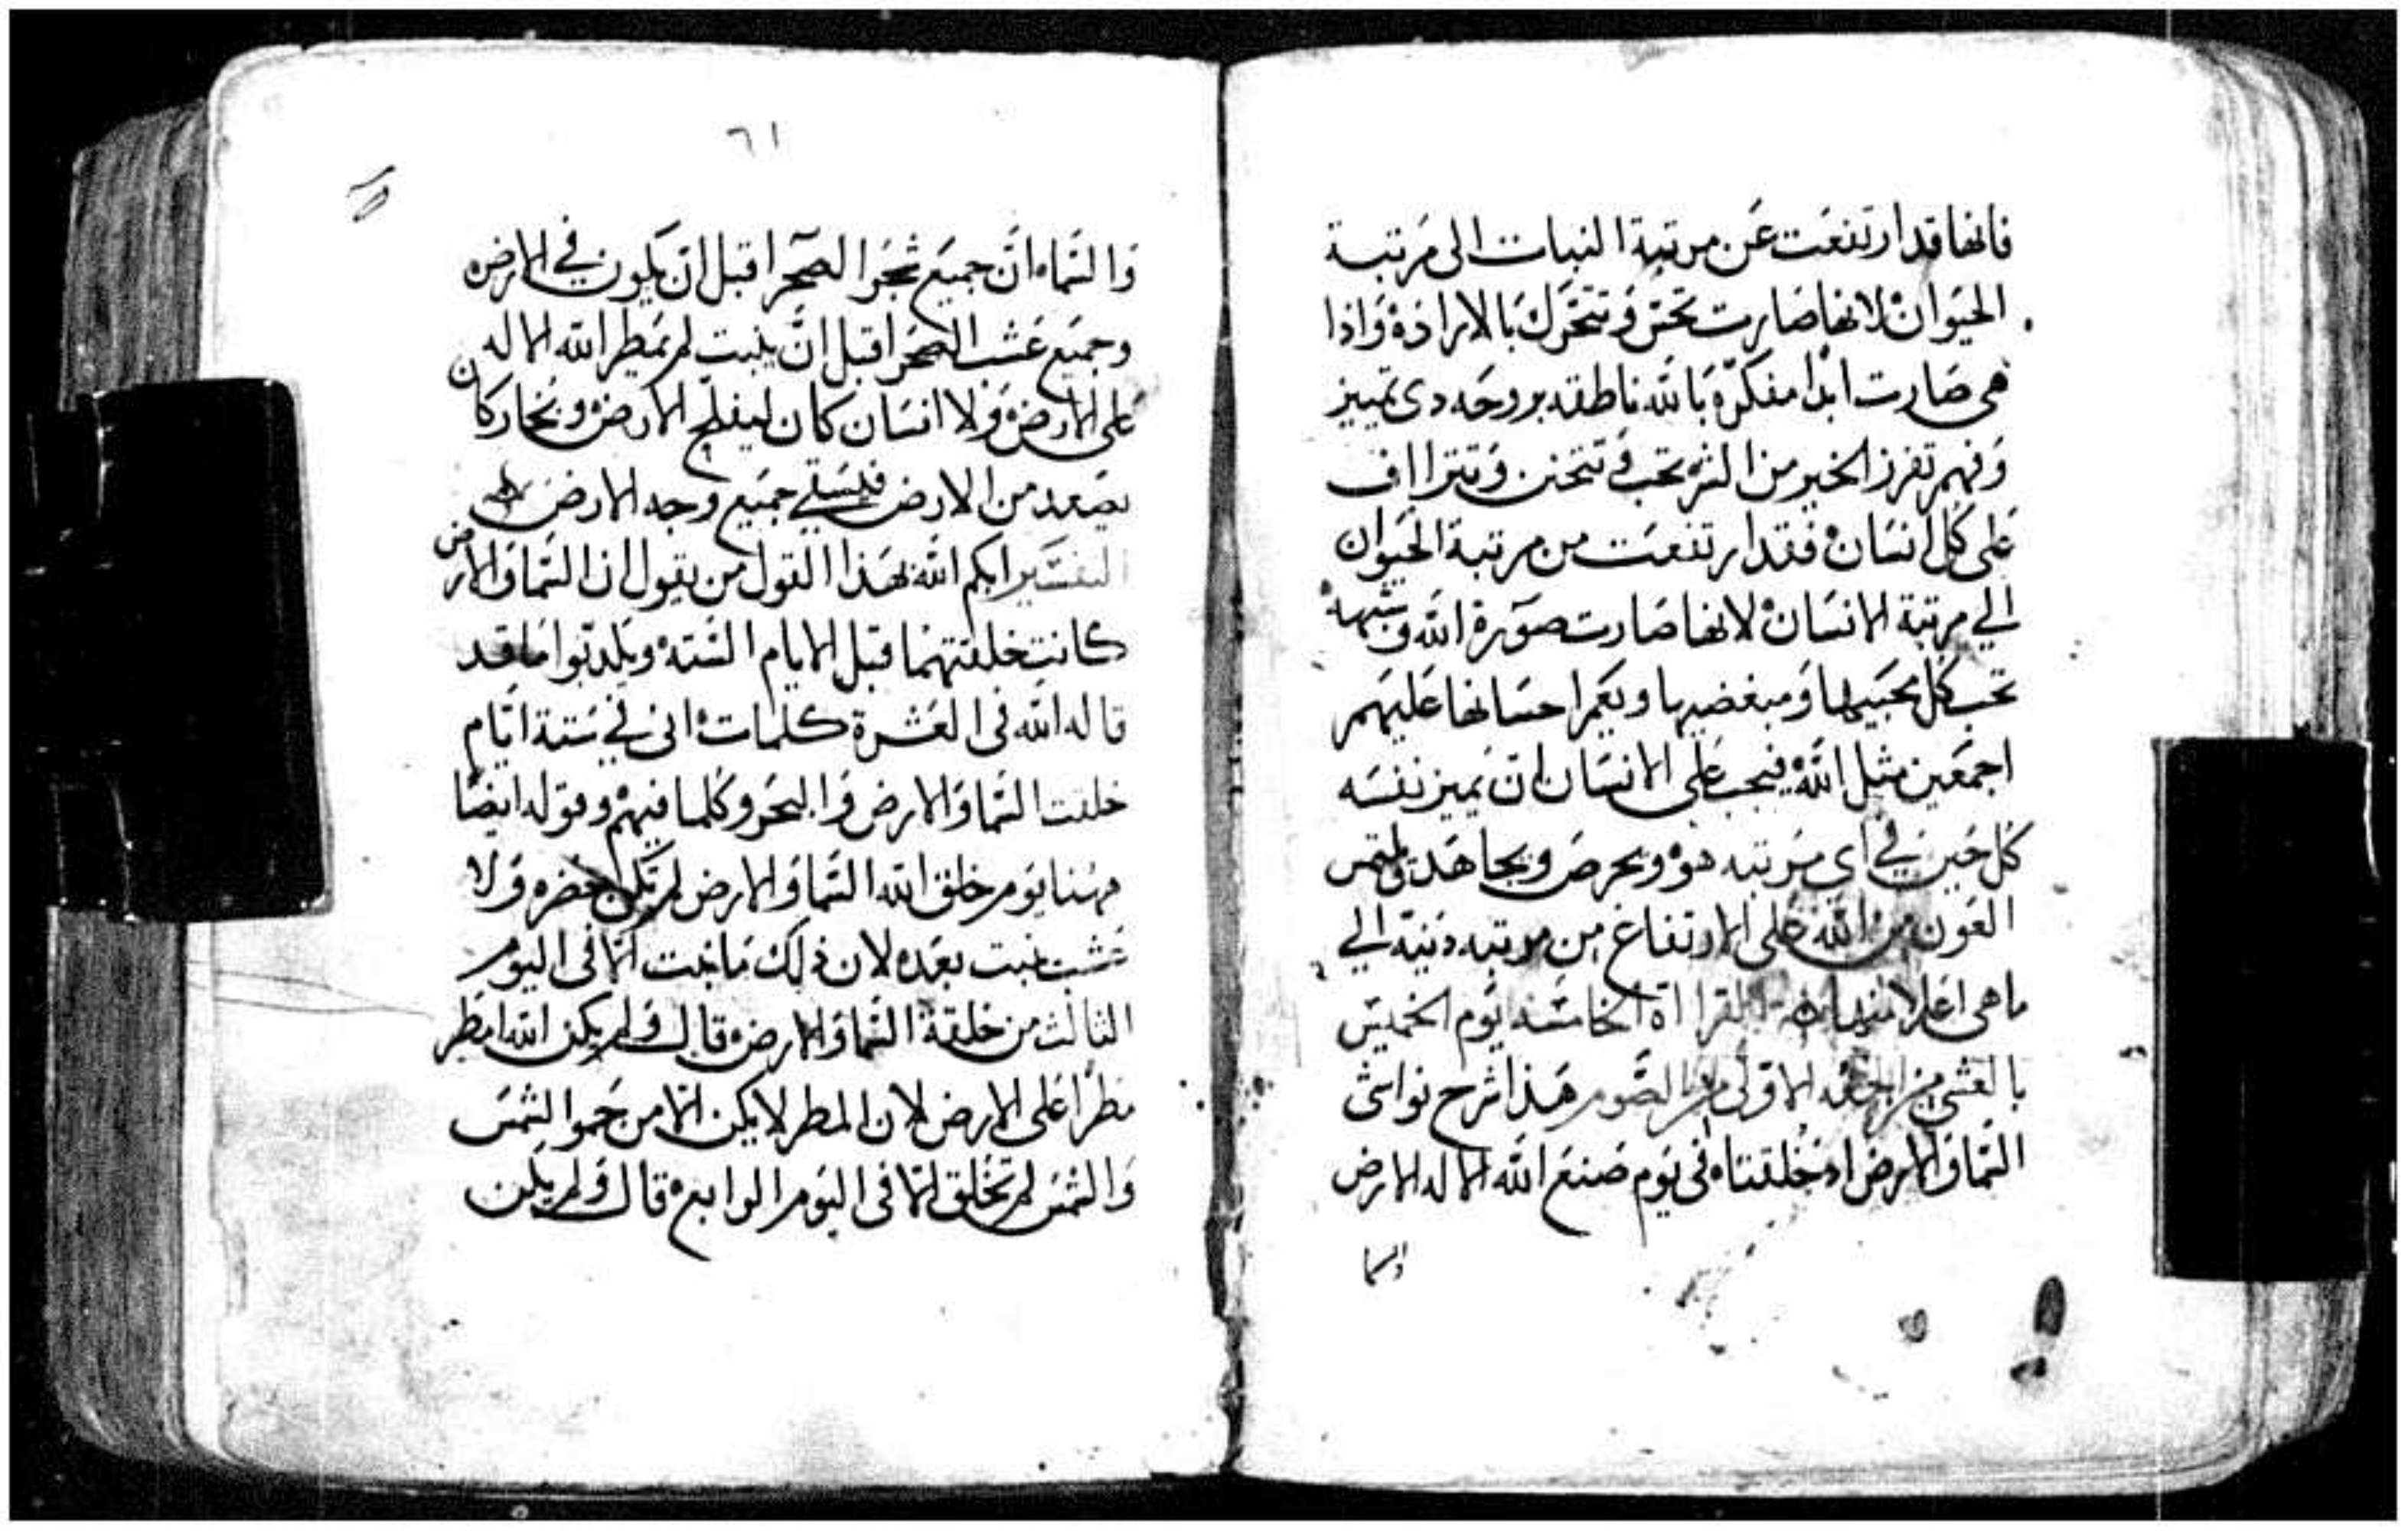 فانها قد ارتفعت عن مرتبة النبات الى مرتبة
الحيوان لانها صارت تحس وتتحرك بالارادة واذا
هى صارت ابدا مفكرة بالله ناطقه بروحه دى تمييز
وفهم تفرز الخير من الشر تحب وتتحنن وتتراااف
على كل انسان فقد ارتفعت من مرتبة الحيوان
الي مرتبة الانسان لانها صارت صورة الله وشبهه
تحب كل محبيها ومبغضيها ويعم احسانها عليهم
اجمعين مثل الله فيجب على الانسان ان يميز نفسه
كل حين في اي مرتبه هو ويحرص ويجاهد ويلتمس
العون من الله على الارتفاع من مرتبه دنيه الي
ماهى اعلا منها القرااة الخامسه يوم الخميس
بالعشي من الجمعه الاولى من الصوم هذا شرح نواتى
السما والارض اد خلقتاه فى يوم صنع الله الاله الارض
والسما
٦١
والسماه ان جميع شجر الصحرا قبل ان يكون في الارض
وجميع عشب الصحرا قبل ان ينبت لم يمطر الله الاله
على الارض ولا انسان كان ليفلح الارض وبخار كان
يصعد من الارض فيسقي جميع وجه الارض
التفسير ابكم الله بهذا القول من يقول ان السما والارض
كانت خلقتهما قبل الايام السته ويلدبوا ما قد
قاله الله فى العشرة كلمات انى في ستة ايام
خلقت السما والارض والبحر وكلما فيهم وقوله ايضا
هنا يوم خلق الله السما والارض لم تكن خضره ولا
عشب نبت بعده لان ذلك ما نبت الا فى اليوم
الثالث من خلقة السما والارض قال ولم يكن الله امطر
مطرا على الارض لان المطر لا يكن الا من حمو الشمس
والشمس لم تخلق الا فى اليوم الرابع قال ولم يكن